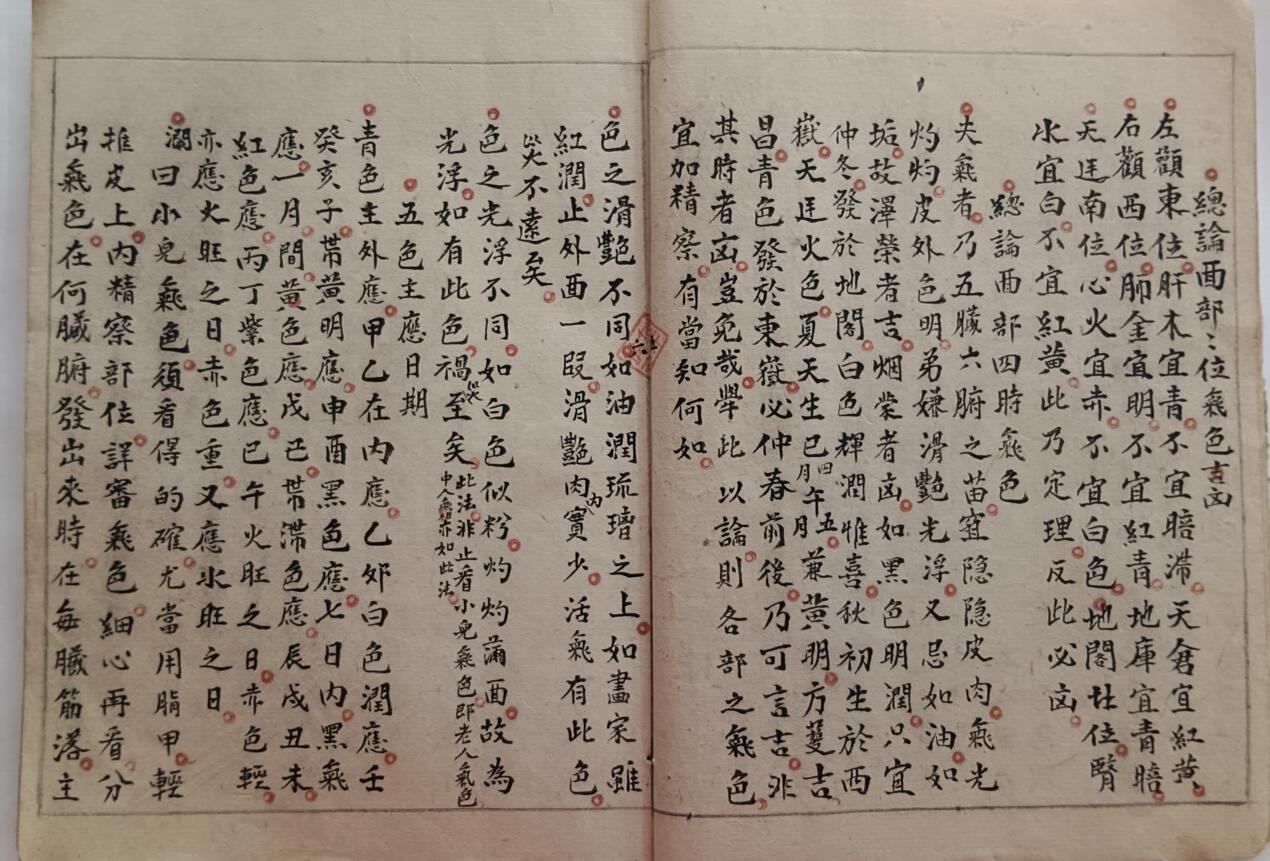 總論面部三位氣色吉凶
左觀東位肝木宜青不宜暗滯天倉宜紅黃
右觀西位肺金宜明不宜紅青地庫宜青暗
天廷南位心火宜赤不宜白色地閣北位腎
水宜白不宜紅黃此乃定理反此必凶
總論面部四時氣色
夫氣者乃五臟六腑之苗窍隐隐皮肉氣光
灼灼皮外色明弟嫌滑艷光浮又忌如油如
垢故澤榮者吉烟蒙者凶如黑色明潤只宜
仲冬發於地閣白色輝潤惟喜秋初生於西
嶽天廷火色夏天生巳四月午五月兼黃明方獲吉
昌青色發於東嶽必仲春前後乃可言吉非
其時者凶豈免哉舉此以論則各部之氣色
宜加精察有當知何如
色之滑艷不同如油潤琉璃之上如畫家雖
紅潤止外面一段滑艷肉內實少活氣有此色
災不遠矣
色之光浮不同如白色似粉灼灼滿面故為
光浮如有此色禍災至矣此法非止看小兒氣色即老人氣色
中人氣色亦如此法
五色主應日期
青色主外應甲乙在内應乙卯白色潤應壬
癸亥子帯黃明應申酉黑色應七日内黑氣
應一月間黃色應戊己帯滯色應辰戌丑未
紅色應丙丁紫色應巳午火旺之日赤色輕
亦應火旺之日赤色重又應水旺之日
澗曰小兒氣色須看得的確尤當用脂甲輕
推皮上内精察部位詳審氣色細心再看分
出氣色在何臟腑發出來時在每臟筋落主